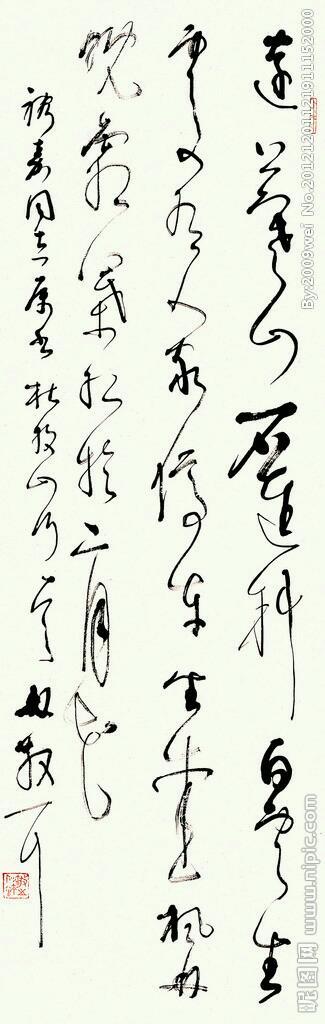 遠上寒山石徑斜白雲生
處有人家停車坐愛枫林
晚霜葉紅於二月花
同志属书杜牧山行林散耳
By:2009wei No.20121201121911152000
昵图网 www.nipic.com